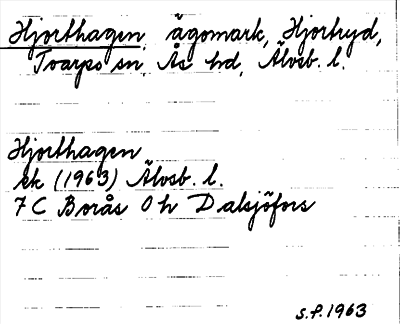 Hjorthagen, ägomark, Hjortryd,
Tvarps sn, Ås hd, Älvsb. l.
Hjorthagen
ek (1963) Älvsb. l.
7 C Borås 0 h Dalsjöfors
S.F. 1963